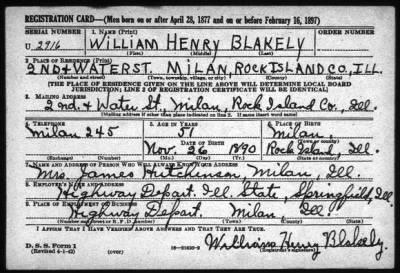 REGISTRATION CARD—(Men born on or after April 28, 1877 and on or before February 16, 1897)
SERIAL NUMBER 1. NAME (Print) ORDER NUMBER
U 2916 WILLIAM HENRY BLAKELY
(First) (Middle) (Last)
2. PLACE OF RESIDENCE (Print)
2ND & WATER ST. MILAN, ROCK ISLAND CO., ILL.
(Number and street) (Town, township, village, or city) (County) (State)
[THE PLACE OF RESIDENCE GIVEN ON THE LINE ABOVE WILL DETERMINE LOCAL BOARD
JURISDICTION; LINE 2 OF REGISTRATION CERTIFICATE WILL BE IDENTICAL]
3. MAILING ADDRESS
2nd. & Water St, Milan, Rock Island Co., Ill.
[Mailing address if other than place indicated on line 2. If same insert word same]
4. TELEPHONE 5. AGE IN YEARS 6. PLACE OF BIRTH
Milan 245 51 Milan,
DATE OF BIRTH (Town or county)
Nov. 26 1890 Rock Island, Ill.
(Exchange) (Number) (Mo.) (Day) (Yr.) (State or country)
7. NAME AND ADDRESS OF PERSON WHO WILL ALWAYS KNOW YOUR ADDRESS
Mrs. James Hutchinson, Milan, Ill.
8. EMPLOYER'S NAME AND ADDRESS
Highway Depart. Ill. State, Springfield, Ill.
9. PLACE OF EMPLOYMENT OR BUSINESS
Highway Depart. Milan, Ill.
(Number and street or R. F. D. number) (Town) (County) (State)
I AFFIRM THAT I HAVE VERIFIED ABOVE ANSWERS AND THAT THEY ARE TRUE.
D. S. S. Form 1
(Revised 4-1-42) (over) William Henry Blakely.
(Registrant's signature)